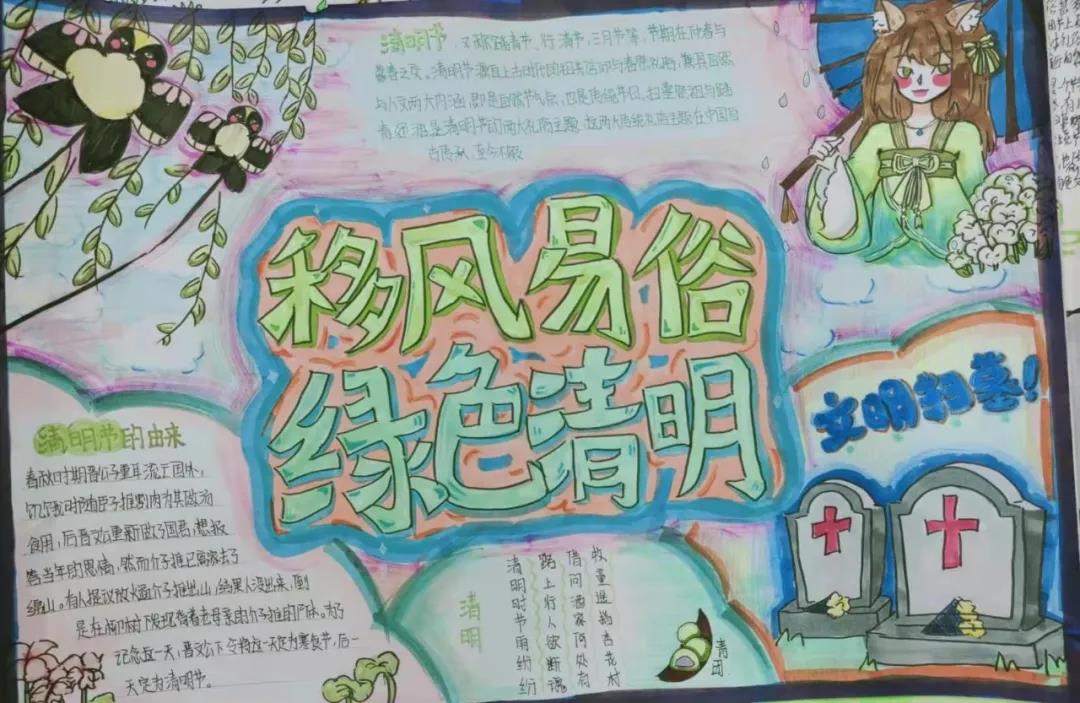 清明节,又称踏青节、行清节、三月节等,节期在仲春与
暮春之交。清明节源自上古时代的祖先信仰与春祭礼俗,兼具自然
与人文两大内涵,既是自然节气点,也是传统节日,扫墓祭祖与踏
青郊游是清明节的两大礼俗主题,这两大传统礼俗主题在中国自
古传承,至今不辍
移风易俗
绿色清明
清明节的由来
春秋时期晋公子重耳流亡国外,
饥饿时随臣介子推割肉为其做汤
食用,后晋文公重新做了国君,想报
答当年的恩情,然而介子推已离家去了
绵山。有人提议放火逼介子推出山,结果人没出来,倒
是在柳树下发现背着老母亲的介子推的尸体。为了
记念这一天,晋文公下令将这一天定为寒食节,后一
天定为清明节。
文明扫墓!
清明
清明时节雨纷纷
路上行人欲断魂
借问酒家何处有
牧童遥指杏花村
青团